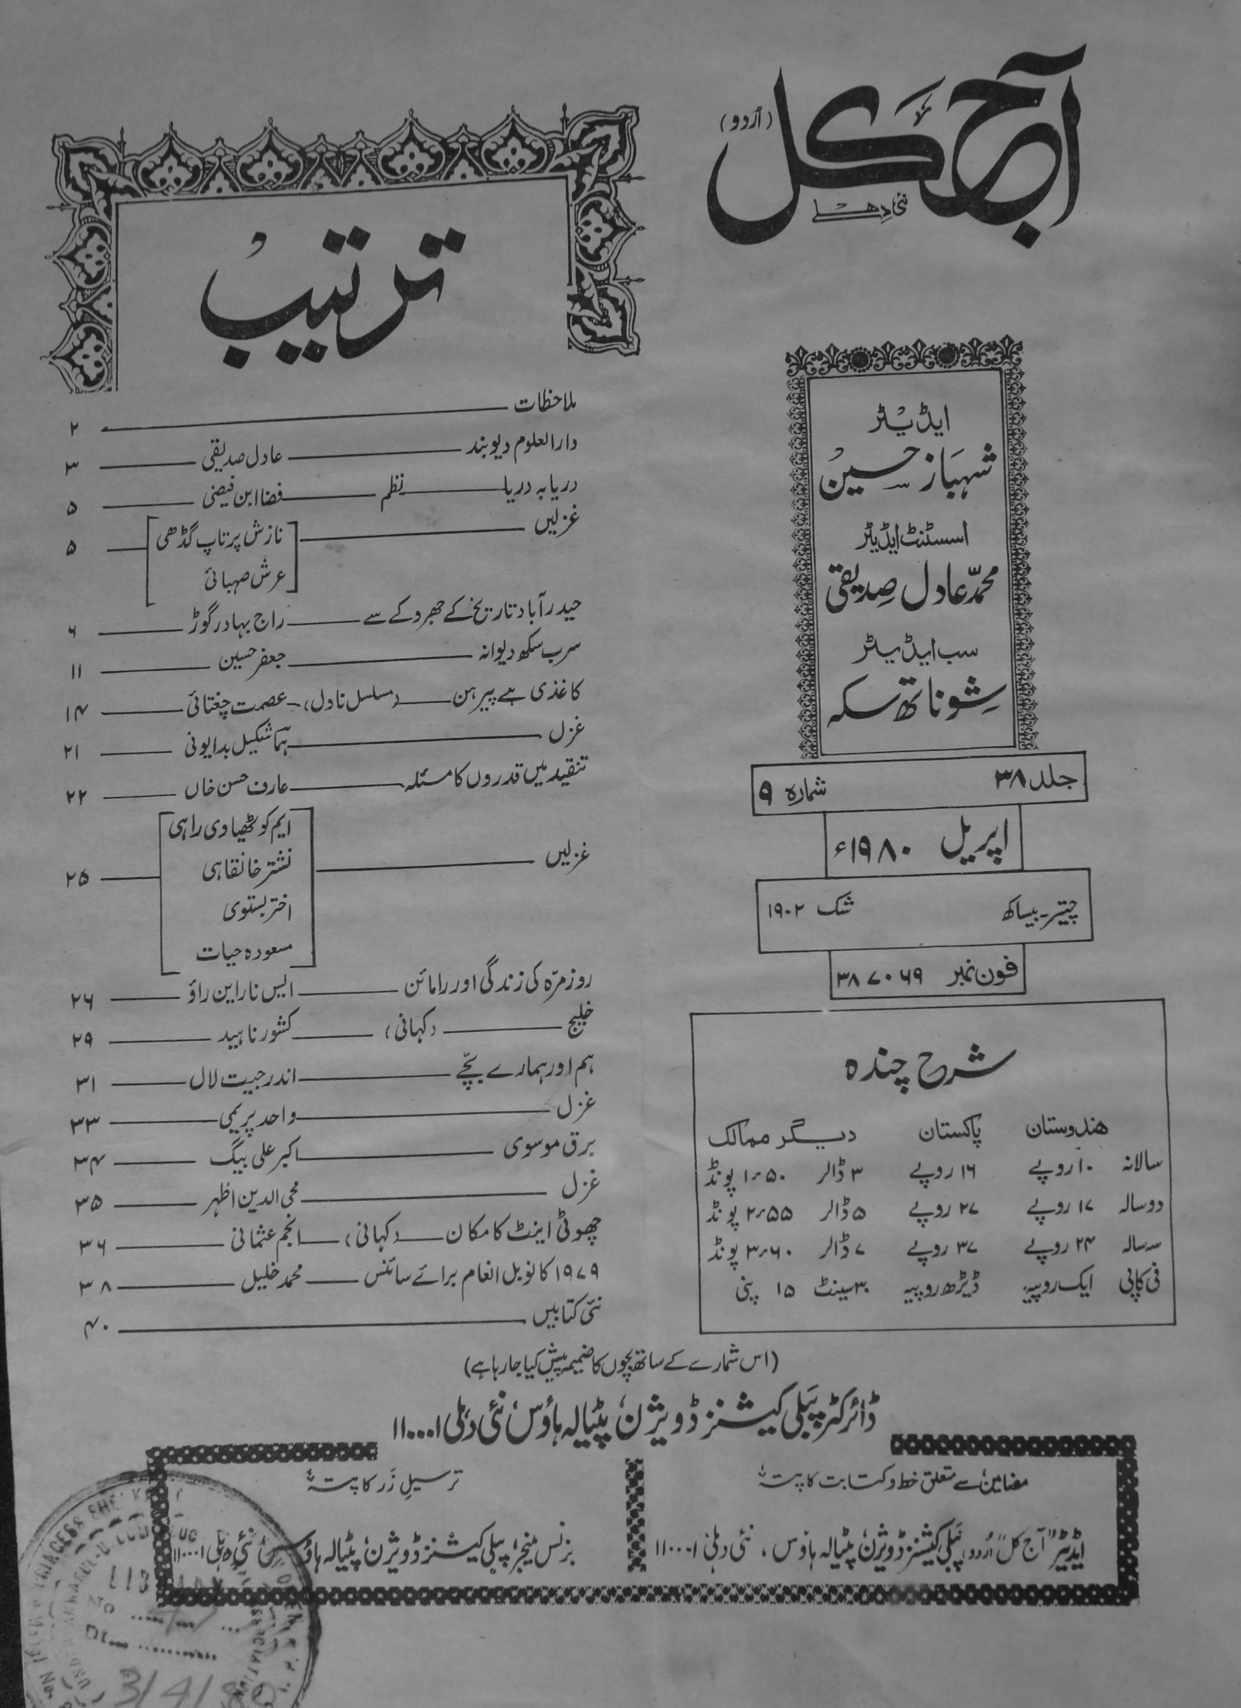 آج کل
(اُردو)
نئی دہلی
ایڈیٹر
شہباز حسین
اسسٹنٹ ایڈیٹر
محمّد عادل صدیقی
سب ایڈیٹر
شوناتھ سکہ
جلد ۳۸ شمارہ ۹
اپریل ۱۹۸۰ء
چیتر۔بیساکھ شک ۱۹۰۲
فون نمبر ۳۸۷۰۶۹
شرح چندہ
ہندوستان پاکستان دیگر ممالک
سالانہ ۱۰ روپے ۱۶ روپے ۳ ڈالر ۱٫۵۰ پونڈ
دو سالہ ۱۷ روپے ۲۷ روپے ۵ ڈالر ۲٫۵۵ پونڈ
سہ سالہ ۲۴ روپے ۳۷ روپے ۷ ڈالر ۳٫۶۰ پونڈ
فی کاپی ایک روپیہ ڈیڑھ روپیہ ۳۰ سینٹ ۱۵ پنی
ترتیب
ملاحظات ۲
دارالعلوم دیوبند عادل صدیقی ۳
دریا بہ دریا نظم فضا ابن فیضی ۵
غزلیں نازش پرتاپ گڈھی ۵
عرش صہبائی
حیدرآباد تاریخ کے جھروکے سے راج بہادر گوڑ ۶
سرب سکھ دیوانہ جعفر حسین ۱۱
کاغذی ہے پیرہن (مسلسل ناول) عصمت چغتائی ۱۴
غزل ہما شکیل بدایونی ۲۱
تنقید میں قدروں کا مسئلہ عارف حسن خاں ۲۲
غزلیں ایم کوٹھیاوی راہی ۲۵
نشتر خانقاہی
اختر بستوی
مسعودہ حیات
روزمرّہ کی زندگی اور رامائن ایس نارائن راؤ ۲۶
خلیج (کہانی) کشور ناہید ۲۹
ہم اور ہمارے بچّے اندرجیت لال ۳۱
غزل واحد پریمی ۳۳
برق موسوی اکبر علی بیگ ۳۴
غزل محی الدین اظہر ۳۵
چھوٹی اینٹ کا مکان (کہانی) انجم عثمانی ۳۶
۱۹۷۹ کا نوبل انعام برائے سائنس محمد خلیل ۳۸
نئی کتابیں ۴۰
(اس شمارے کے ساتھ بچوں کا ضمیمہ پیش کیا جا رہا ہے)
ڈائرکٹر پبلی کیشنز ڈویژن، پٹیالہ ہاؤس، نئی دہلی ۱۱۰۰۰۱
مضامین سے متعلق خط و کتابت کا پتہ:
ایڈیٹر "آج کل" (اُردو) پبلی کیشنز ڈویژن، پٹیالہ ہاؤس، نئی دہلی ۱۱۰۰۰۱
ترسیلِ زر کا پتہ:
بزنس منیجر، پبلی کیشنز ڈویژن، پٹیالہ ہاؤس، نئی دہلی ۱۱۰۰۰۱
3/4/80